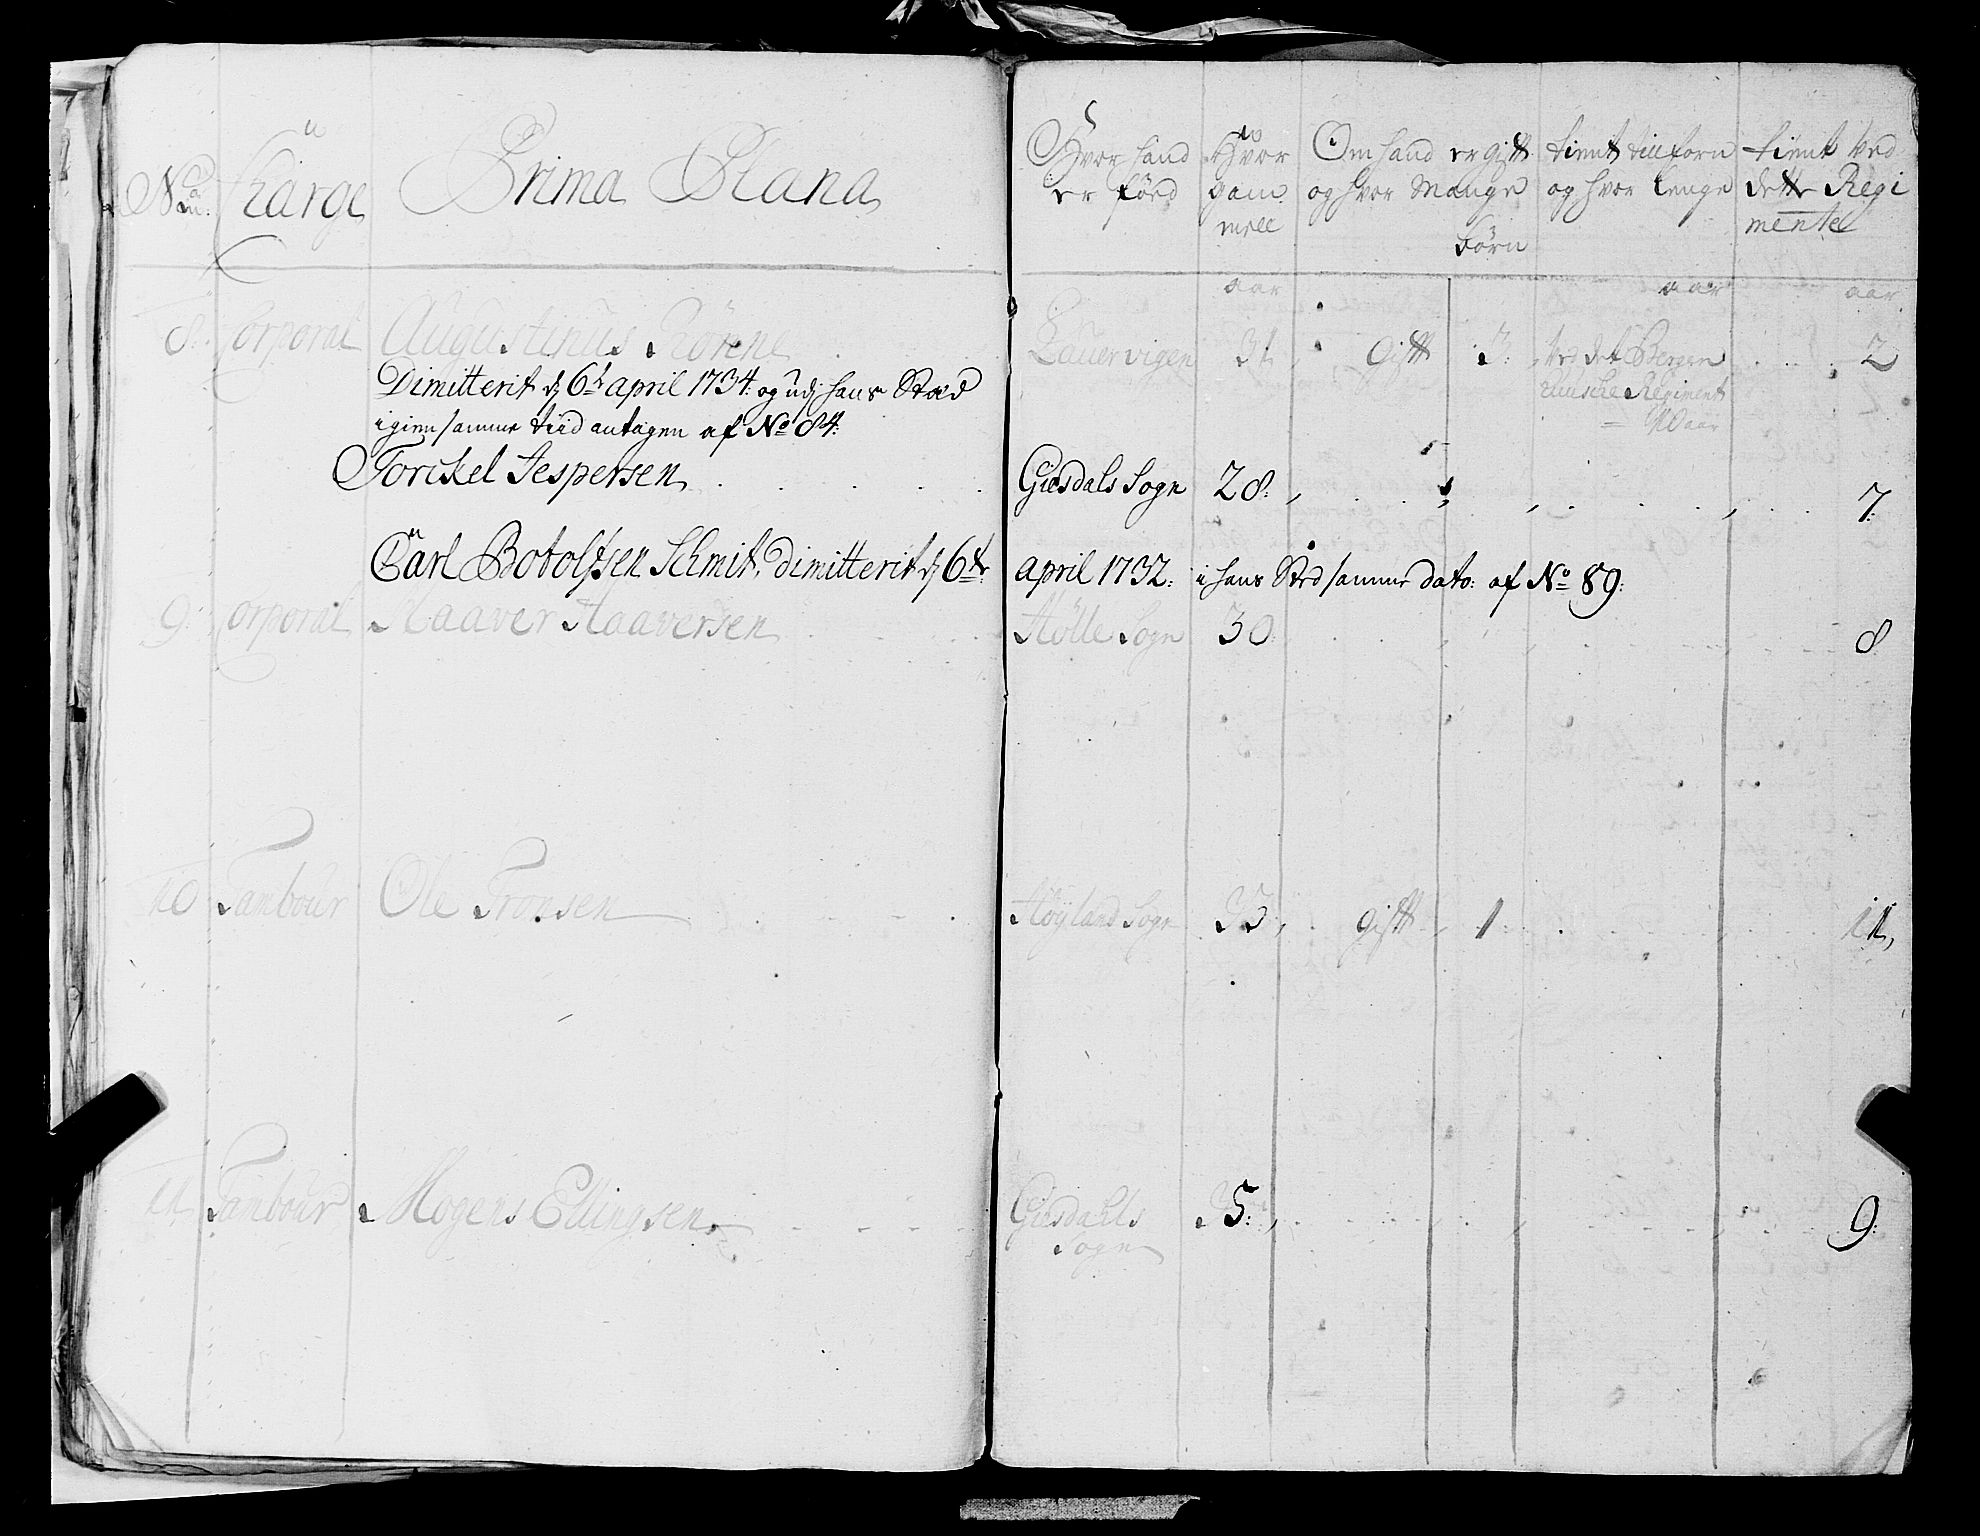 No Charge Prima Plana
Hvor hand er föed
Hvor gam mell
Om hand er gift og hvor Mange börn
tient tillforn og hvor lenge
tient ved dette Regi mente
aar aar aar
8. Corporal Augustinus Rönne . . Lauervigen 31 gift 3. ved det Bergen . . . 2
husiske Regiment
10 aar
Dimitterit d 6t april 1734. og udj hans Stæd
igien samme tiid antagen af No 84.
Torckel Jespersen . . . . Giesdals Sogn 28. . . . . . . . 7.
Carl Botolfsen Schmit, dimitterit d 6te april 1732. i hans Sted samme dato: af No 89:
9. Corporal Haaver Haaversen . . . Hölle Sogn 30. . . . . 8
10 Tambour Ole Tronsen . . . Höyland Sogn 33, gift 1 . . . 11,
11. Tambour Mogens Ellingsen . . . Giesdahls Sogn 35. . . . . 9.